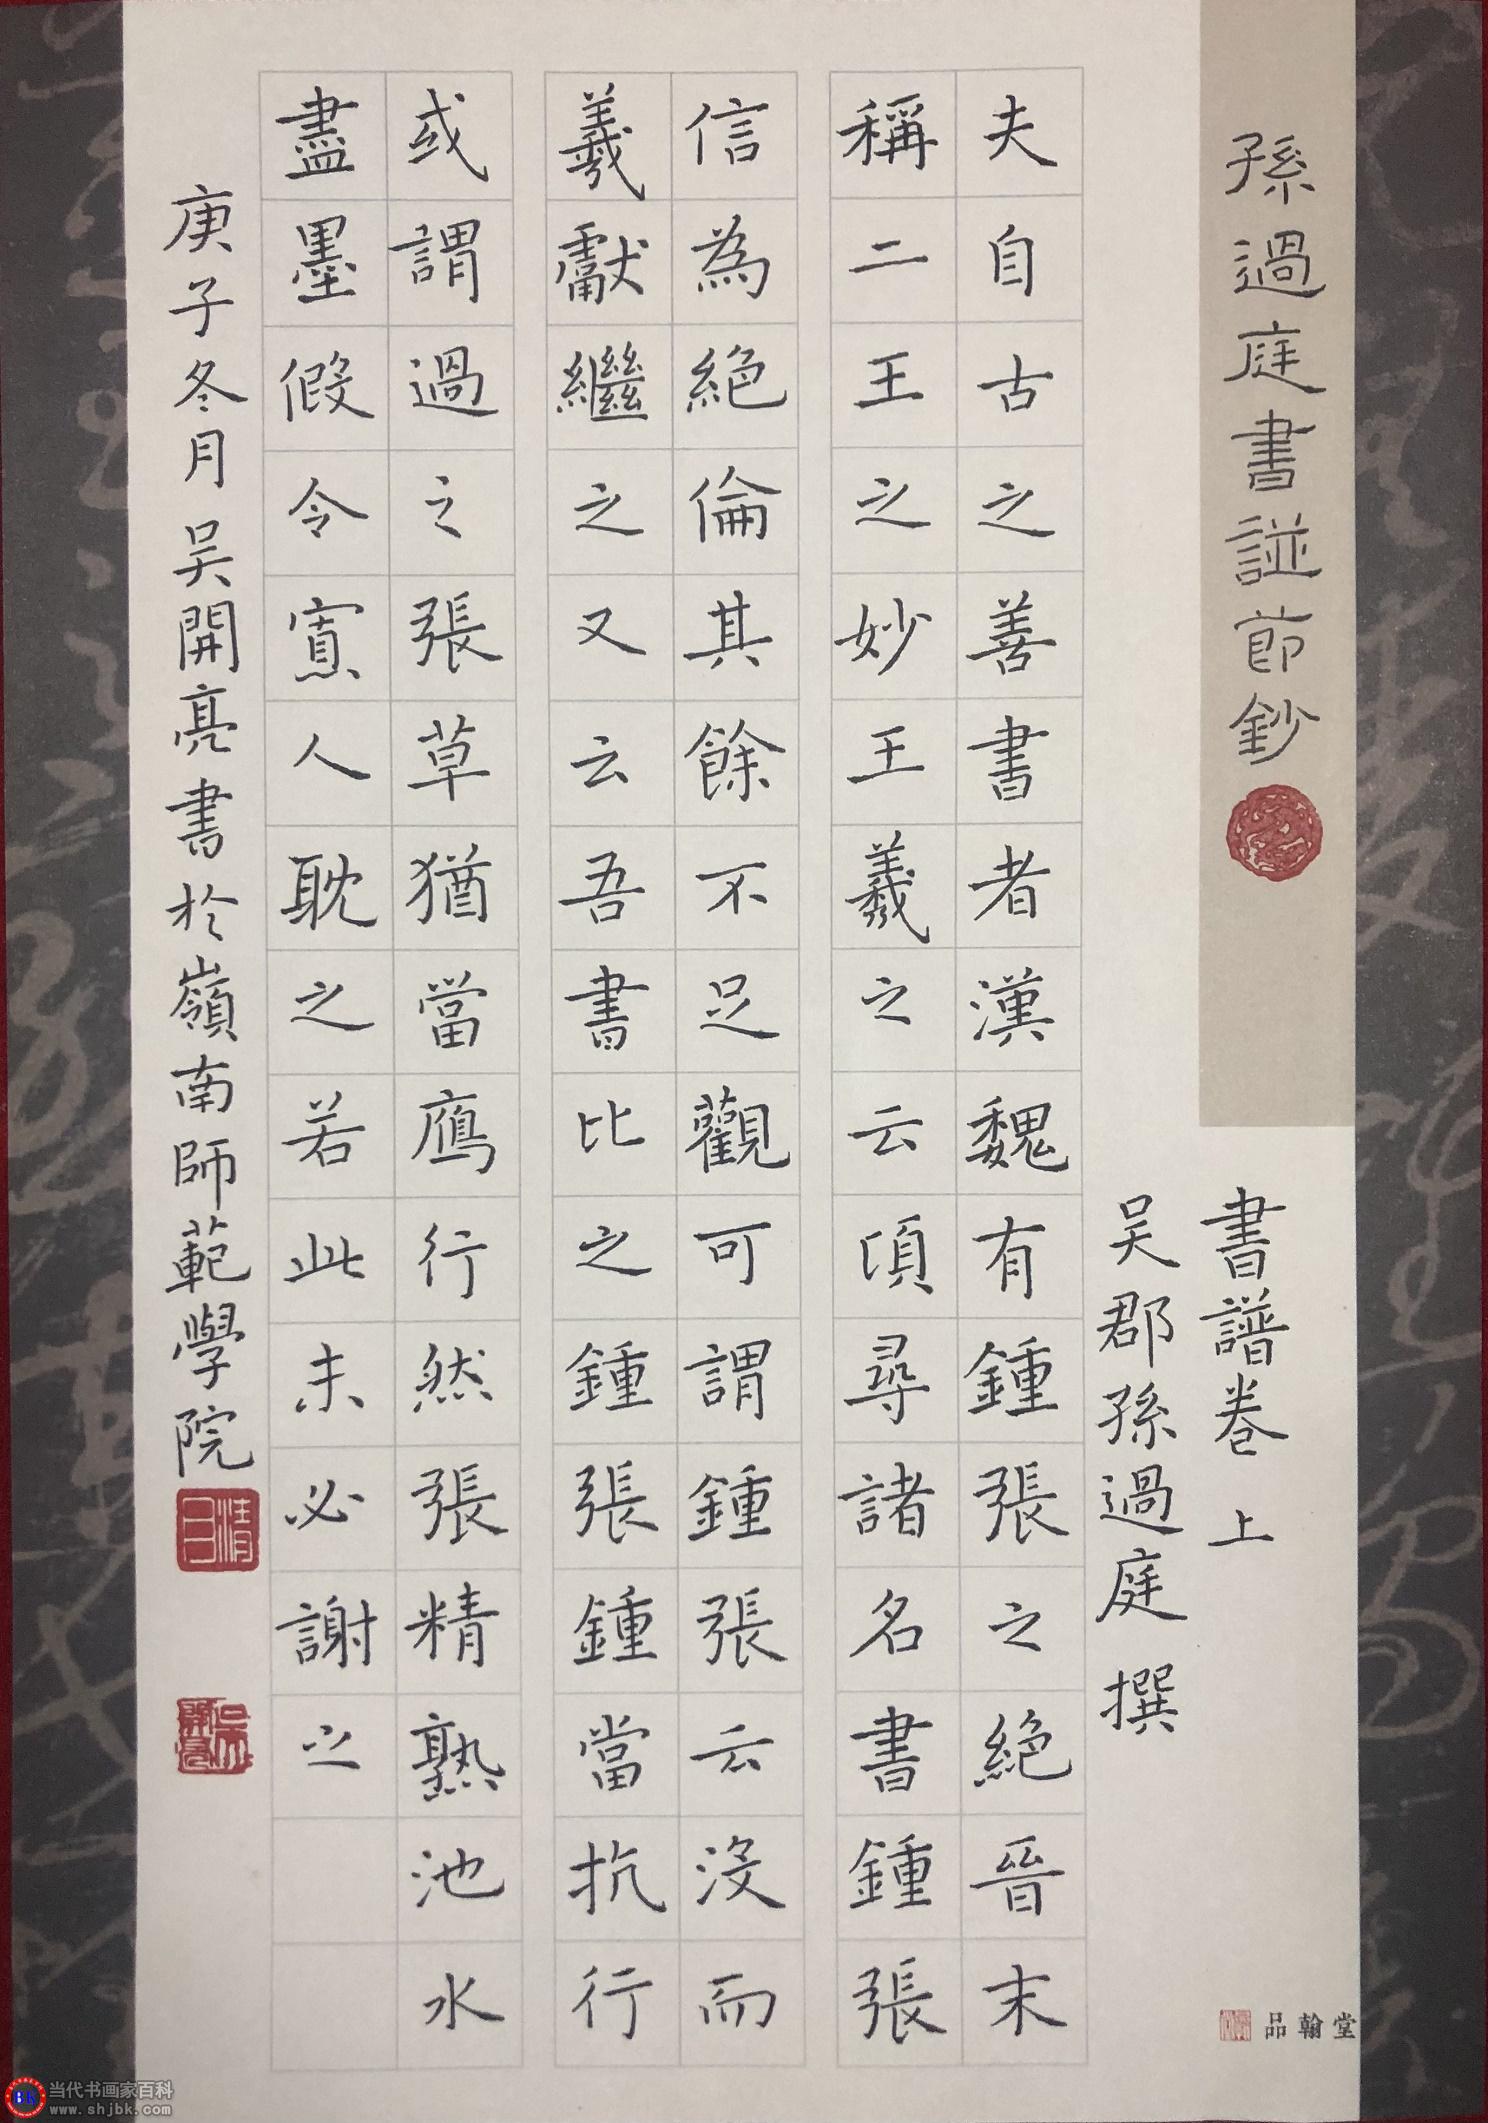 孫過庭書譜節鈔
書譜卷上
吳郡孫過庭撰
夫自古之善書者漢魏有鍾張之絕晉末
稱二王之妙王羲之云頃尋諸名書鍾張
信為絕倫其餘不足觀可謂鍾張云沒而
羲獻繼之又云吾書比之鍾張鍾當抗行
或謂過之張草猶當鴈行然張精熟池水
盡墨假令寘人耽之若此未必謝之
庚子冬月吳開亮書於嶺南師範學院
品翰堂
当代书画家百科
www.shjbk.com
BK